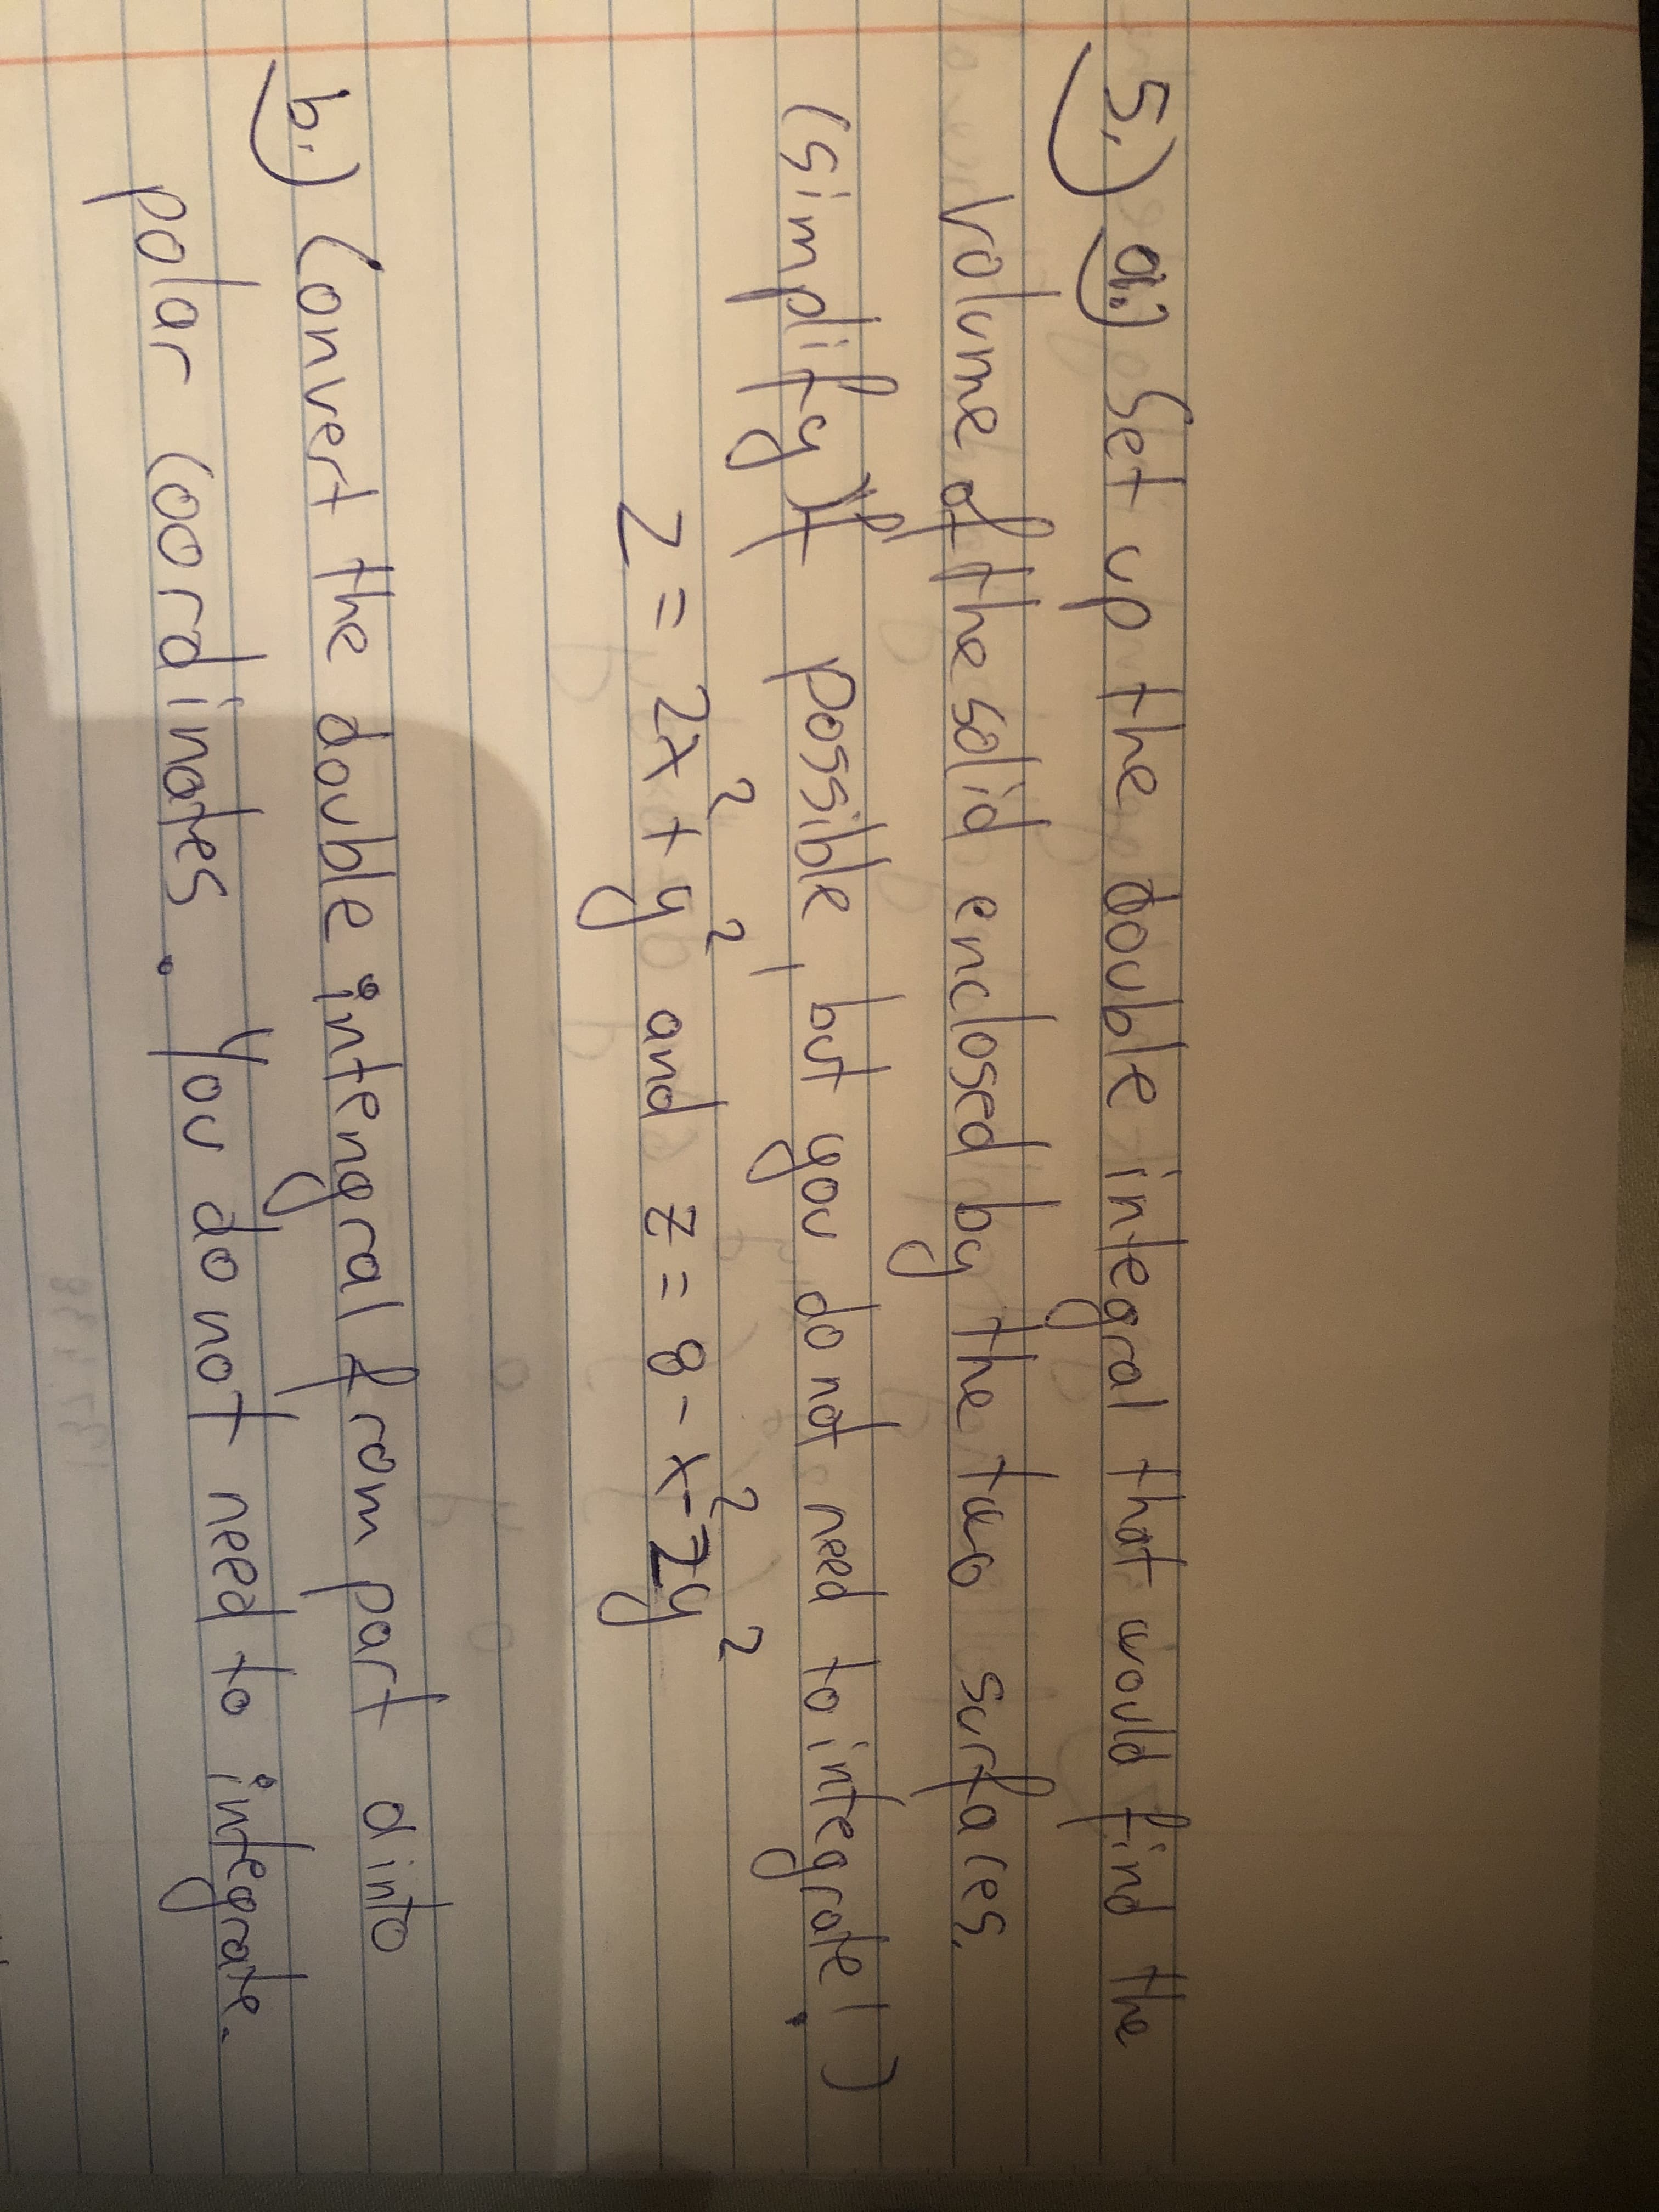 5.) a.) Set up the double integral that would find the
Volume of the solid enclosed by the two surfaces.
(simplify if possible, but you do not need to integrate!)
z = 2x² + y² and z = 8 - x² - 2y²
b.) Convert the double intengral from part a into
polar coordinates. You do not need to integrate.